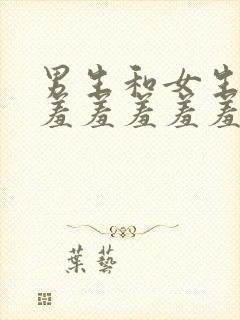 男生和女生
羞羞羞羞羞
葉藝